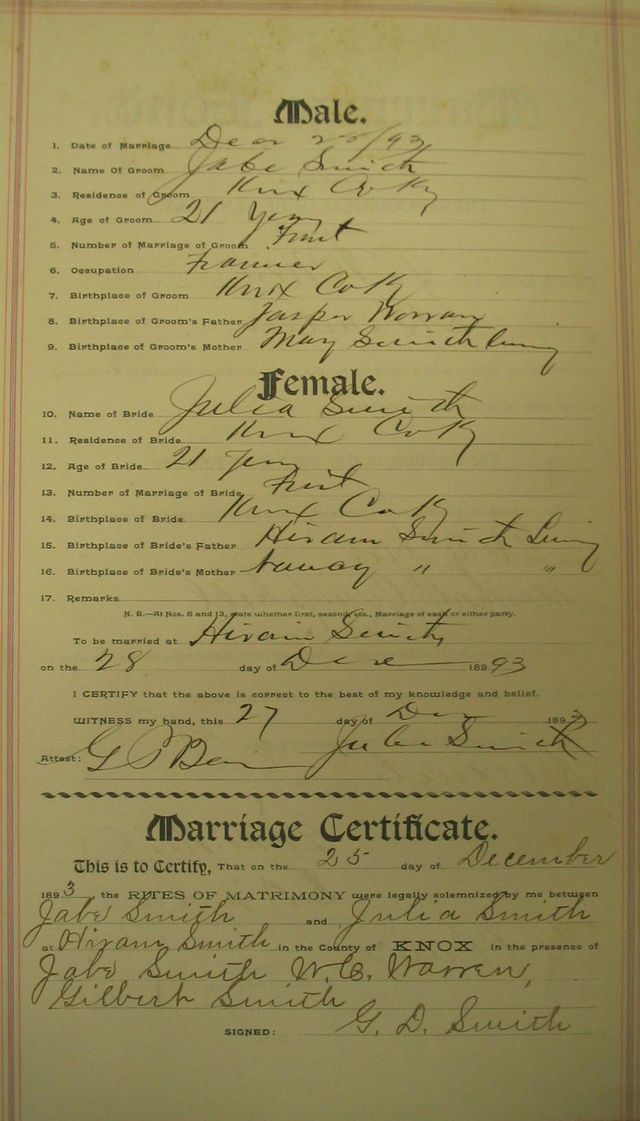 Male.
1. Date of Marriage Dec 28/93
2. Name Of Groom Jabe Smith
3. Residence of Groom Knox Co Ky
4. Age of Groom 21 years
5. Number of Marriage of Groom First
6. Occupation Farmer
7. Birthplace of Groom Knox Co Ky
8. Birthplace of Groom's Father Jasper Worran
9. Birthplace of Groom's Mother May Smith Living
Female.
10. Name of Bride Julia Smith
11. Residence of Bride Knox Co Ky
12. Age of Bride 21 years
13. Number of Marriage of Bride First
14. Birthplace of Bride Knox Co Ky
15. Birthplace of Bride's Father Hiram Smith Living
16. Birthplace of Bride's Mother Nancy " "
17. Remarks
N. B.—At Nos. 5 and 13, state whether first, second, etc., Marriage of each or either party.
To be married at Hiram Smiths
on the 28 day of Dec 1893
I CERTIFY that the above is correct to the best of my knowledge and belief.
WITNESS my hand, this 27 day of Dec 1893
Attest: Smith
Marriage Certificate.
This is to Certify, That on the 25 day of December
1893, the RITES OF MATRIMONY were legally solemnized by me between
Jabe Smith and Julia Smith
at Hiram Smith in the County of KNOX in the presence of
Jabe Smith W. C. Warren,
Gilbert Smith
SIGNED: G. D. Smith